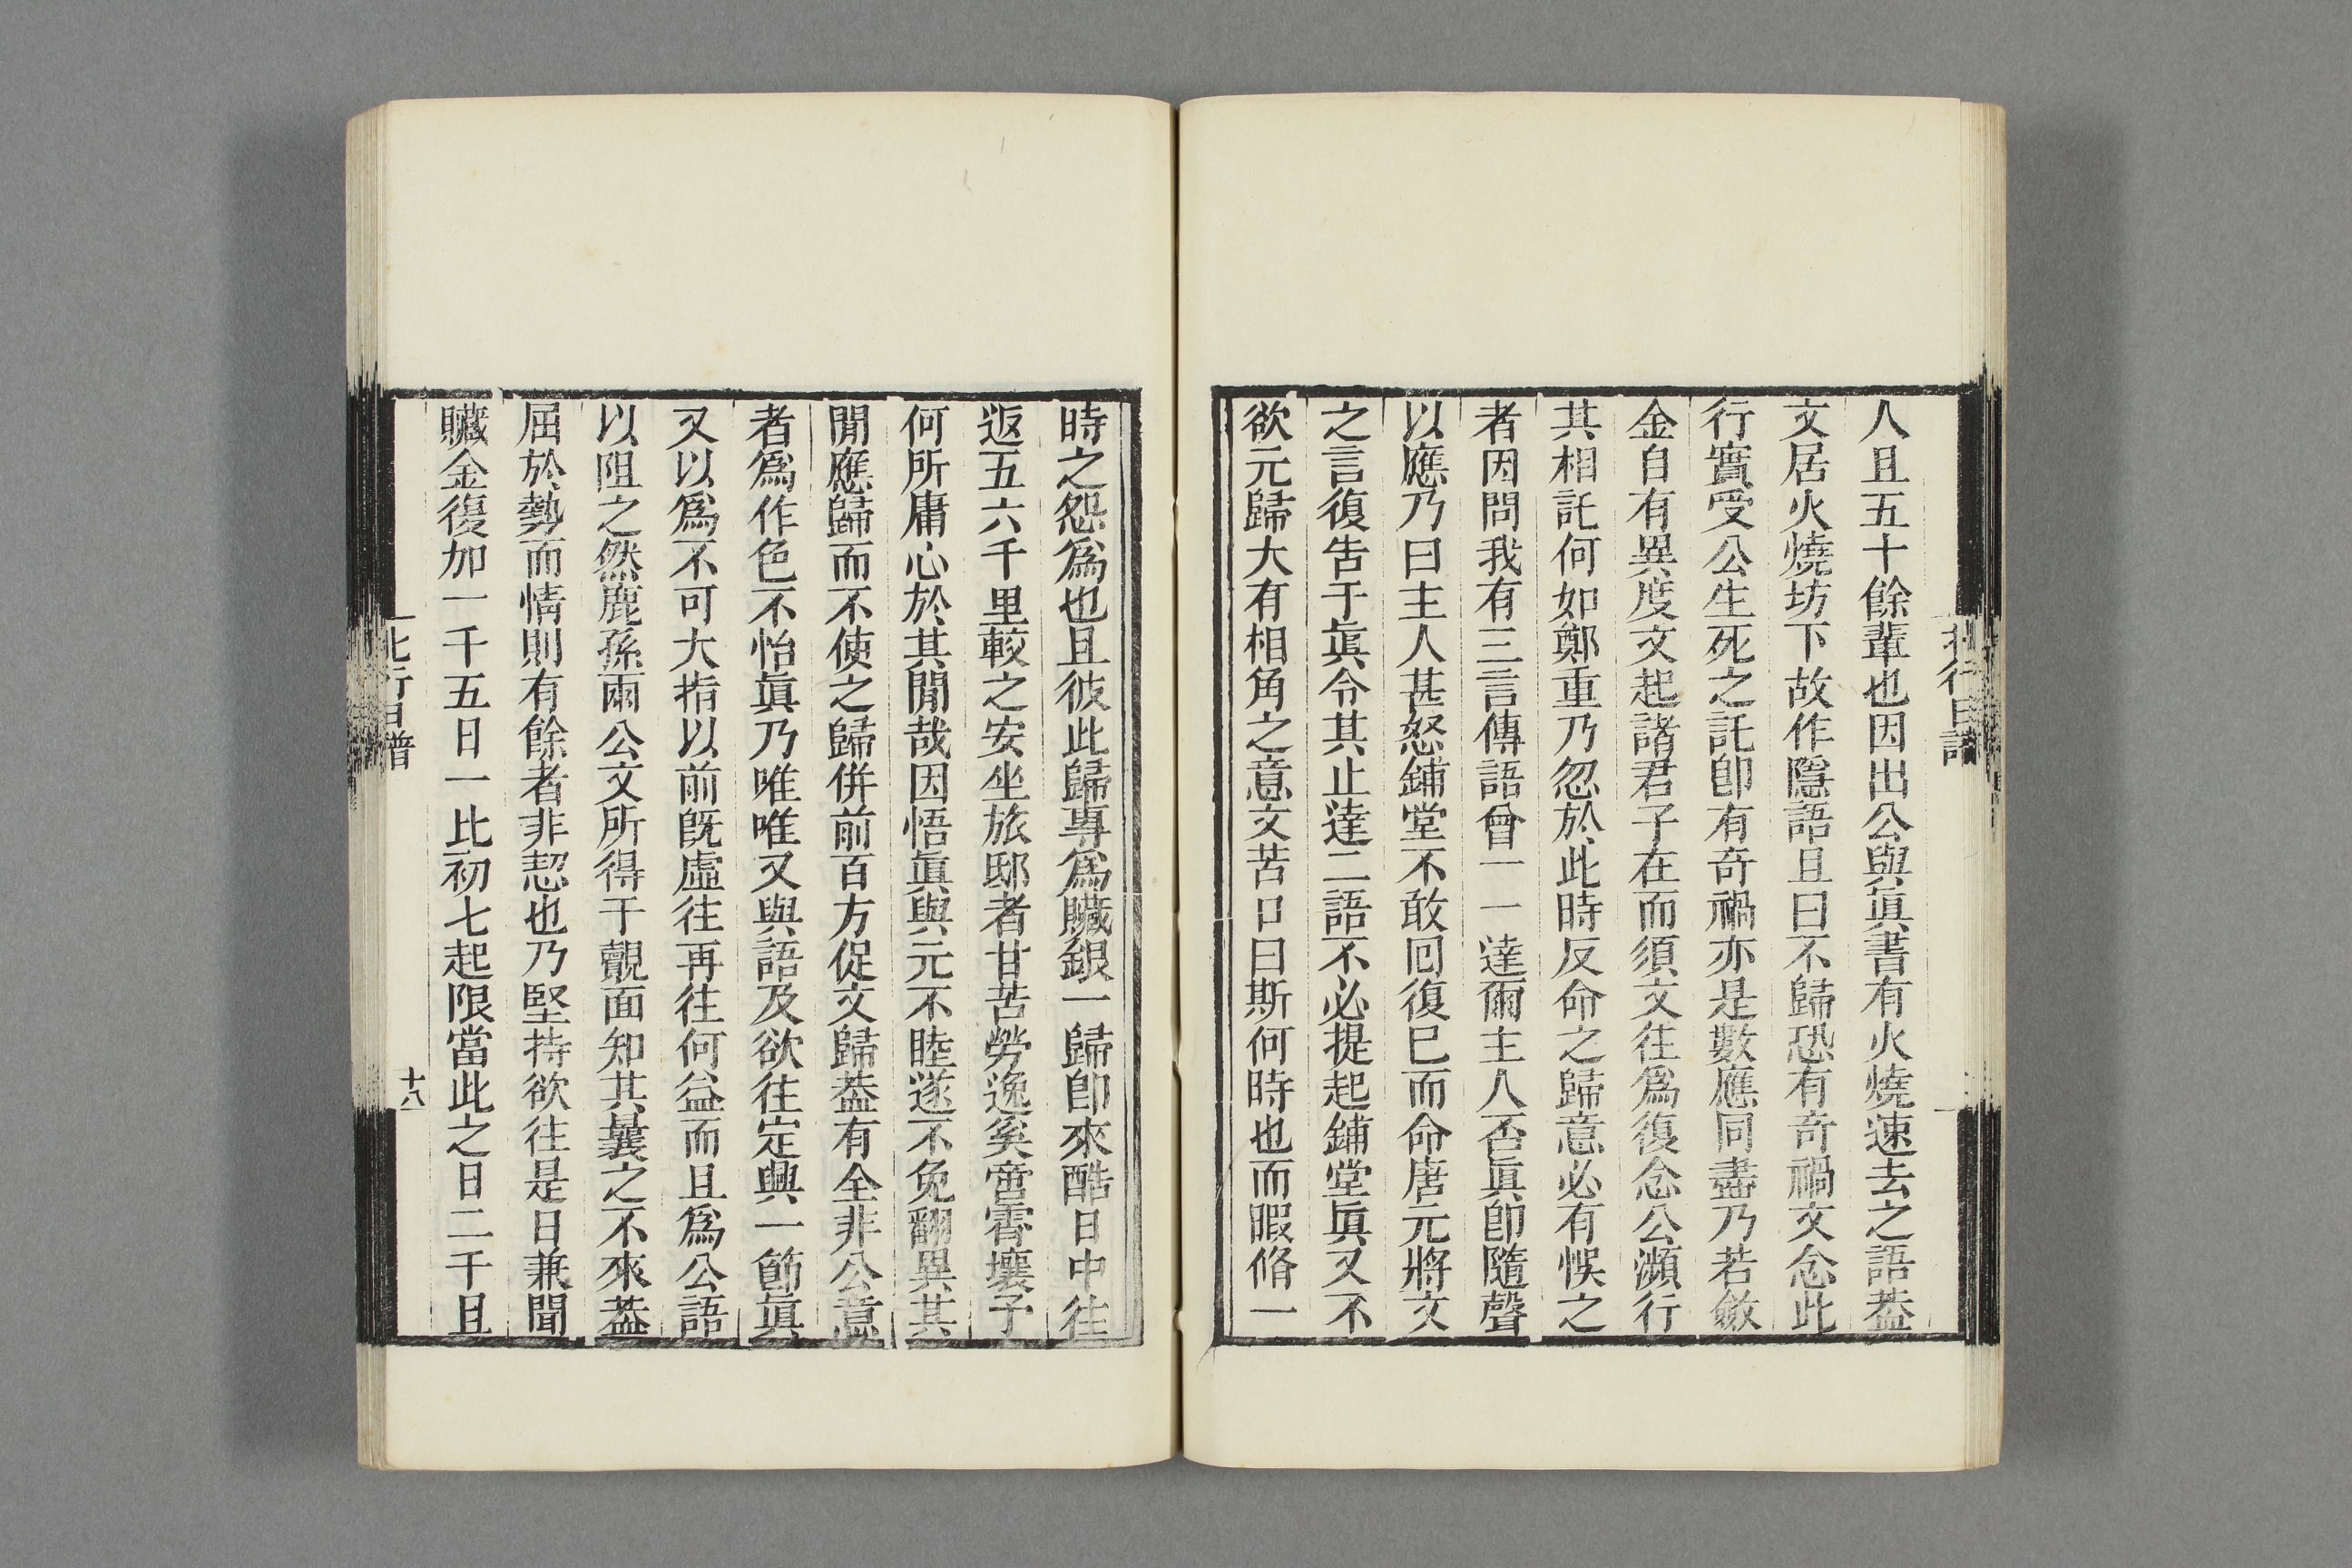 北行日譜
人且五十餘輩也因出公與眞書有火燒速去之語葢
文居火燒坊下故作隱語且曰不歸恐有奇禍文念此
行實受公生死之託卽有奇禍亦是數應同盡乃若斂
金自有異度文起諸君子在而須文往爲復念公瀕行
其相託何如鄭重乃忽於此時反命之歸意必有悞之
者因問我有三言傳語曾一一達爾主人否眞卽隨聲
以應乃曰主人甚怒鋪堂不敢囘復巳而命唐元將文
之言復吿于眞令其止達二語不必提起鋪堂眞又不
欲元歸大有相角之意文苦口曰斯何時也而暇脩一
時之怨爲也且彼此歸專爲贓銀一歸卽來酷日中往
返五六千里較之安坐旅邸者甘苦勞逸奚啻霄壤予
何所庸心於其閒哉因悟眞與元不睦遂不免翻異其
閒應歸而不使之歸併前百方促文歸葢有全非公意
者爲作色不怡眞乃唯唯又與語及欲往定興一節眞
又以爲不可大指以前旣虛往再往何益而且爲公語
以阻之然鹿孫兩公文所得于覿面知其曩之不來葢
屈於勢而情則有餘者非恝也乃堅持欲往是日兼聞
贓金復加一千五日一比初七起限當此之日二千且
北行日譜
十八